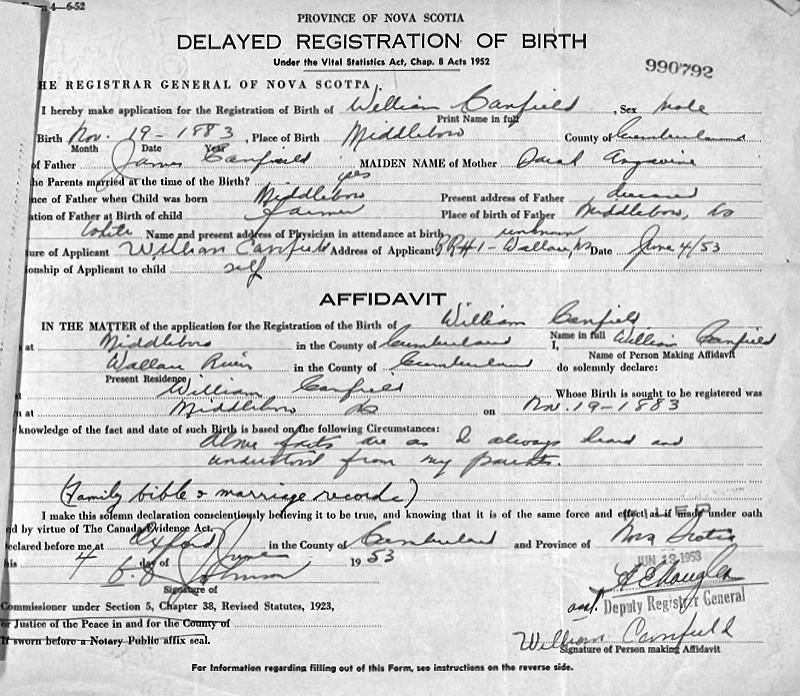 4-6-52
PROVINCE OF NOVA SCOTIA
DELAYED REGISTRATION OF BIRTH
Under the Vital Statistics Act, Chap. 8 Acts 1952
990792
HE REGISTRAR GENERAL OF NOVA SCOTIA.
I hereby make application for the Registration of Birth of William Canfield, Sex male
Print Name in full
Birth Nov. 19-1883, Place of Birth Middleboro County of Cumberland
Month Date Year
of Father James Canfield MAIDEN NAME of Mother Sarah
he Parents married at the time of the Birth? yes
nce of Father when Child was born Middleboro Present address of Father deceased
ation of Father at Birth of child Farmer Place of birth of Father Middleboro, NS
White Name and present address of Physician in attendance at birth unknown
ure of Applicant William Canfield Address of Applicant RR#1-Wallace, NS Date June 4/53
ionship of Applicant to child self
AFFIDAVIT
IN THE MATTER of the application for the Registration of the Birth of William Canfield
Name in full
at Middleboro in the County of Cumberland I, William Canfield
Name of Person Making Affidavit
Wallace River in the County of Cumberland do solemnly declare:
Present Residence
William Canfield Whose Birth is sought to be registered was
n at Middleboro NS on Nov. 19-1883
knowledge of the fact and date of such Birth is based on the following Circumstances:
Above facts are as I always heard and
understood from my parents.
(Family bible & marriage records)
I make this solemn declaration conscientiously believing it to be true, and knowing that it is of the same force and effect as if made under oath
ed by virtue of The Canada Evidence Act.
eclared before me at Oxford in the County of Cumberland and Province of Nova Scotia
his 4 day of June 1953
JUN 12 1953
Signature of
Asst. Deputy Registrar General
Commissioner under Section 5, Chapter 38, Revised Statutes, 1923,
or Justice of the Peace in and for the County of
If sworn before a Notary Public affix seal.
William Canfield
Signature of Person making Affidavit
For Information regarding filling out of this Form, see instructions on the reverse side.